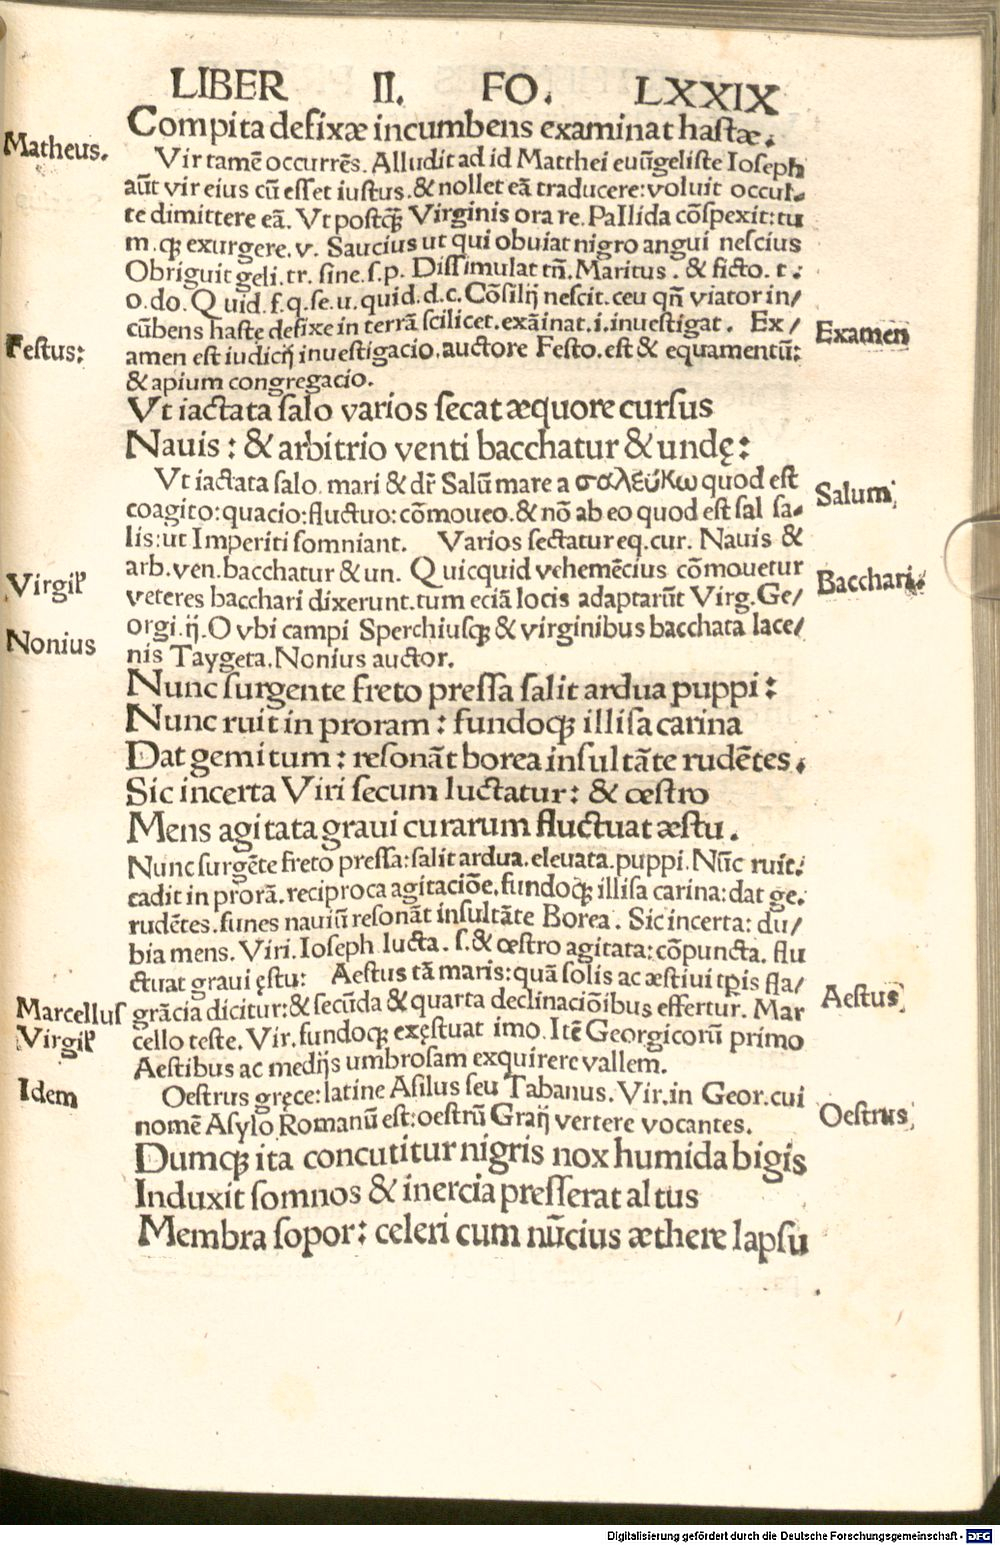 LIBER II. FO. LXXIX
Compita defixæ incumbens examinat hastæ.
Matheus.
Vir tamē occurrēs. Alludit ad id Matthei euūgeliste Ioseph
aūt vir eius cū esset iustus. & nollet eā traducere: voluit occul-
te dimittere eā. Vt postq̄ȝ Virginis ora re. Pallida cōspexit: tu
m. qȝ exurgere. v. Saucius ut qui obuiat nigro angui nescius
Obriguit geli. tr. sine. s. p. Dissimulat tn̄. Maritus. & ficto. t.
o. do. Quid. f. q. se. u. quid. d. c. Cōsilij nescit. ceu qn̄ viator in/
cūbens haste defixe in terrā scilicet. exāinat. i. inuestigat. Ex/
Examen
Festus:
amen est iudicij inuestigacio. auctore Festo. est & equamentū:
& apium congregacio.
Vt iactata salo varios secat æquore cursus
Nauis: & arbitrio venti bacchatur & undę:
Vt iactata salo. mari & dr̄ Salū mare a σαλεύκω quod est
Salum
coagito: quacio: fluctuo: cōmoueo. & nō ab eo quod est sal sa-
lis: ut Imperiti somniant. Varios sectatur eq. cur. Nauis &
arb. ven. bacchatur & un. Quicquid vehemēcius cōmouetur
Bacchari.
Virgil'
veteres bacchari dixerunt. tum eciā locis adaptarūt Virg. Ge/
orgi. ij. O vbi campi Sperchiusqȝ & virginibus bacchata lace/
Nonius
nis Taygeta. Nonius auctor.
Nunc surgente freto pressa salit ardua puppi:
Nunc ruit in proram: fundoqȝ illisa carina
Dat gemitum: resonāt borea insultāte rudētes.
Sic incerta Viri secum luctatur: & œstro
Mens agitata graui curarum fluctuat æstu.
Nunc surgēte freto pressa: salit ardua. eleuata. puppi. Nūc ruit.
cadit in prorā. reciproca agitaciōe. fundoqȝ illisa carina: dat ge.
rudētes. funes nauiū resonāt insultāte Borea. Sic incerta: du/
bia mens. Viri. Ioseph lucta. s. & œstro agitata: cōpuncta. flu
ctuat graui ęstu: Aestus tā maris: quā solis ac æstiui tp̄is fla/
Aestus
Marcellus
grācia dicitur: & secūda & quarta declinaciōibus effertur. Mar
Virgil'
cello teste. Vir. fundoqȝ exęstuat imo. Itē Georgicorū primo
Aestibus ac medijs umbrosam exquirere vallem.
Idem
Oestrus gręce: latine Asilus seu Tabanus. Vir. in Geor. cui
Oestrus
nomē Asylo Romanū est: oestrū Graij vertere vocantes.
Dumqȝ ita concutitur nigris nox humida bigis
Induxit somnos & inercia presserat altus
Membra sopor: celeri cum nūcius æthere lapsu
Digitalisierung gefördert durch die Deutsche Forschungsgemeinschaft - DFG